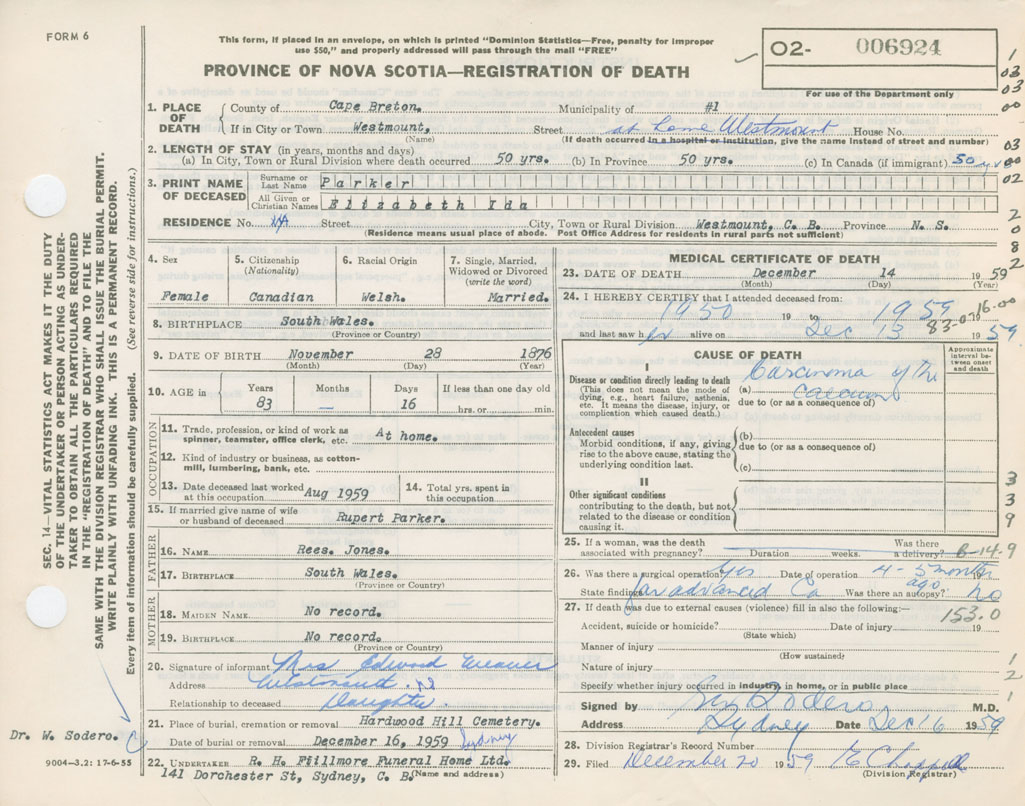 FORM 6
This form, if placed in an envelope, on which is printed "Dominion Statistics—Free, penalty for improper
use $50," and properly addressed will pass through the mail "FREE"
PROVINCE OF NOVA SCOTIA—REGISTRATION OF DEATH
02- 006924
For use of the Department only
1. PLACE OF DEATH
County of Cape Breton. Municipality of #1
If in City or Town Westmount, Street at home Westmount House No.
(Name) (If death occurred in a hospital or institution, give the name instead of street and number)
2. LENGTH OF STAY (in years, months and days)
(a) In City, Town or Rural Division where death occurred 50 yrs. (b) In Province 50 yrs. (c) In Canada (if immigrant) 50 yrs
3. PRINT NAME OF DECEASED
Surname or Last Name Parker
All Given or Christian Names Elizabeth Ida
RESIDENCE No. Street City, Town or Rural Division Westmount, C. B. Province N. S.
(Residence means usual place of abode. Post Office Address for residents in rural parts not sufficient)
4. Sex
Female
5. Citizenship
(Nationality)
Canadian
6. Racial Origin
Welsh.
7. Single, Married,
Widowed or Divorced
(write the word)
Married.
8. BIRTHPLACE South Wales.
(Province or Country)
9. DATE OF BIRTH November 28 1876
(Month) (Day) (Year)
10. AGE in
Years 83
Months —
Days 16
If less than one day old
hrs. or min.
OCCUPATION
11. Trade, profession, or kind of work as
spinner, teamster, office clerk, etc. At home.
12. Kind of industry or business, as cotton-
mill, lumbering, bank, etc.
13. Date deceased last worked
at this occupation Aug 1959
14. Total yrs. spent in
this occupation
15. If married give name of wife
or husband of deceased Rupert Parker.
FATHER
16. NAME Rees. Jones.
17. BIRTHPLACE South Wales.
(Province or Country)
MOTHER
18. MAIDEN NAME. No record.
19. BIRTHPLACE No record.
(Province or Country)
20. Signature of informant Mrs Edward Weaver
Address Westmount
Relationship to deceased Daughter.
21. Place of burial, cremation or removal Hardwood Hill Cemetery.
Date of burial or removal December 16, 1959 Sydney
22. UNDERTAKER R. H. Ffillmore Funeral Home Ltd.
141 Dorchester St, Sydney, C. B. (Name and address)
MEDICAL CERTIFICATE OF DEATH
23. DATE OF DEATH December 14 1959
(Month) (Day) (Year)
24. I HEREBY CERTIFY that I attended deceased from:
1950 19 to 1959
and last saw her alive on Dec 13 1959
83-0-16.00
CAUSE OF DEATH
Approximate interval between onset and death
I
Disease or condition directly leading to death
(This does not mean the mode of
dying, e.g., heart failure, asthenia,
etc. It means the disease, injury, or
complication which caused death.)
(a) Carcinoma of the
Caecum
due to (or as a consequence of)
Antecedent causes
Morbid conditions, if any, giving
rise to the above cause, stating the
underlying condition last.
(b)
due to (or as a consequence of)
(c)
II
Other significant conditions
contributing to the death, but not
related to the disease or condition
causing it.
25. If a woman, was the death
associated with pregnancy? Duration weeks. Was there
a delivery?
6-14-9
26. Was there a surgical operation? Yes Date of operation 4-5 months ago 19
State findings Far advanced Ca Was there an autopsy? No
27. If death was due to external causes (violence) fill in also the following:—
153.0
Accident, suicide or homicide? Date of injury 19
(State which)
Manner of injury
(How sustained)
Nature of injury
Specify whether injury occurred in industry, in home, or in public place
Signed by Sodero M.D.
Address Sydney Date Dec 16 1959
28. Division Registrar's Record Number
29. Filed December 20 1959
(Division Registrar)
SEC. 14—VITAL STATISTICS ACT MAKES IT THE DUTY
OF THE UNDERTAKER OR PERSON ACTING AS UNDER-
TAKER TO OBTAIN ALL THE PARTICULARS REQUIRED
IN THE "REGISTRATION OF DEATH" AND TO FILE THE
SAME WITH THE DIVISION REGISTRAR WHO SHALL ISSUE THE BURIAL PERMIT.
WRITE PLAINLY WITH UNFADING INK. THIS IS A PERMANENT RECORD.
Every item of information should be carefully supplied. (See reverse side for instructions.)
Dr. W. Sodero.
9004—3.2: 17-6-55
1
03
03
00
03
00
02
2
0
8
2
3
3
9
1
2
1